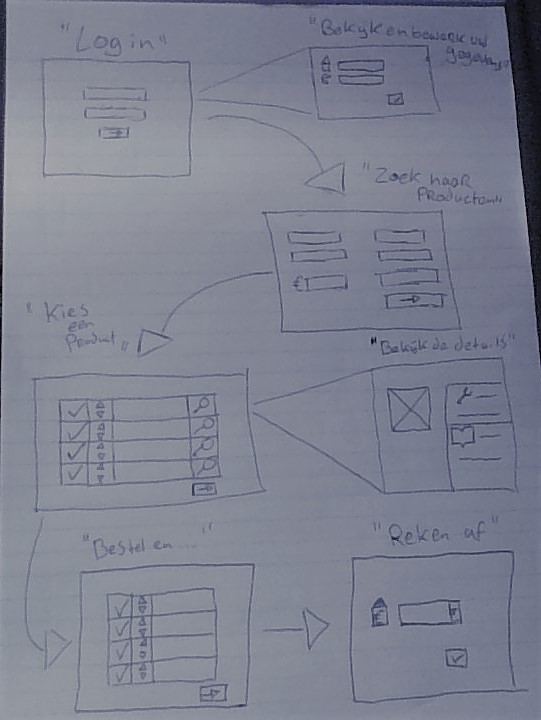 "Login"
"Bekijk en bewerk uw
gegevens"
"Zoek naar
Producten"
€
"Kies
een
Product"
"Bekijk de details"
"Bestel en ... "
"Reken af"